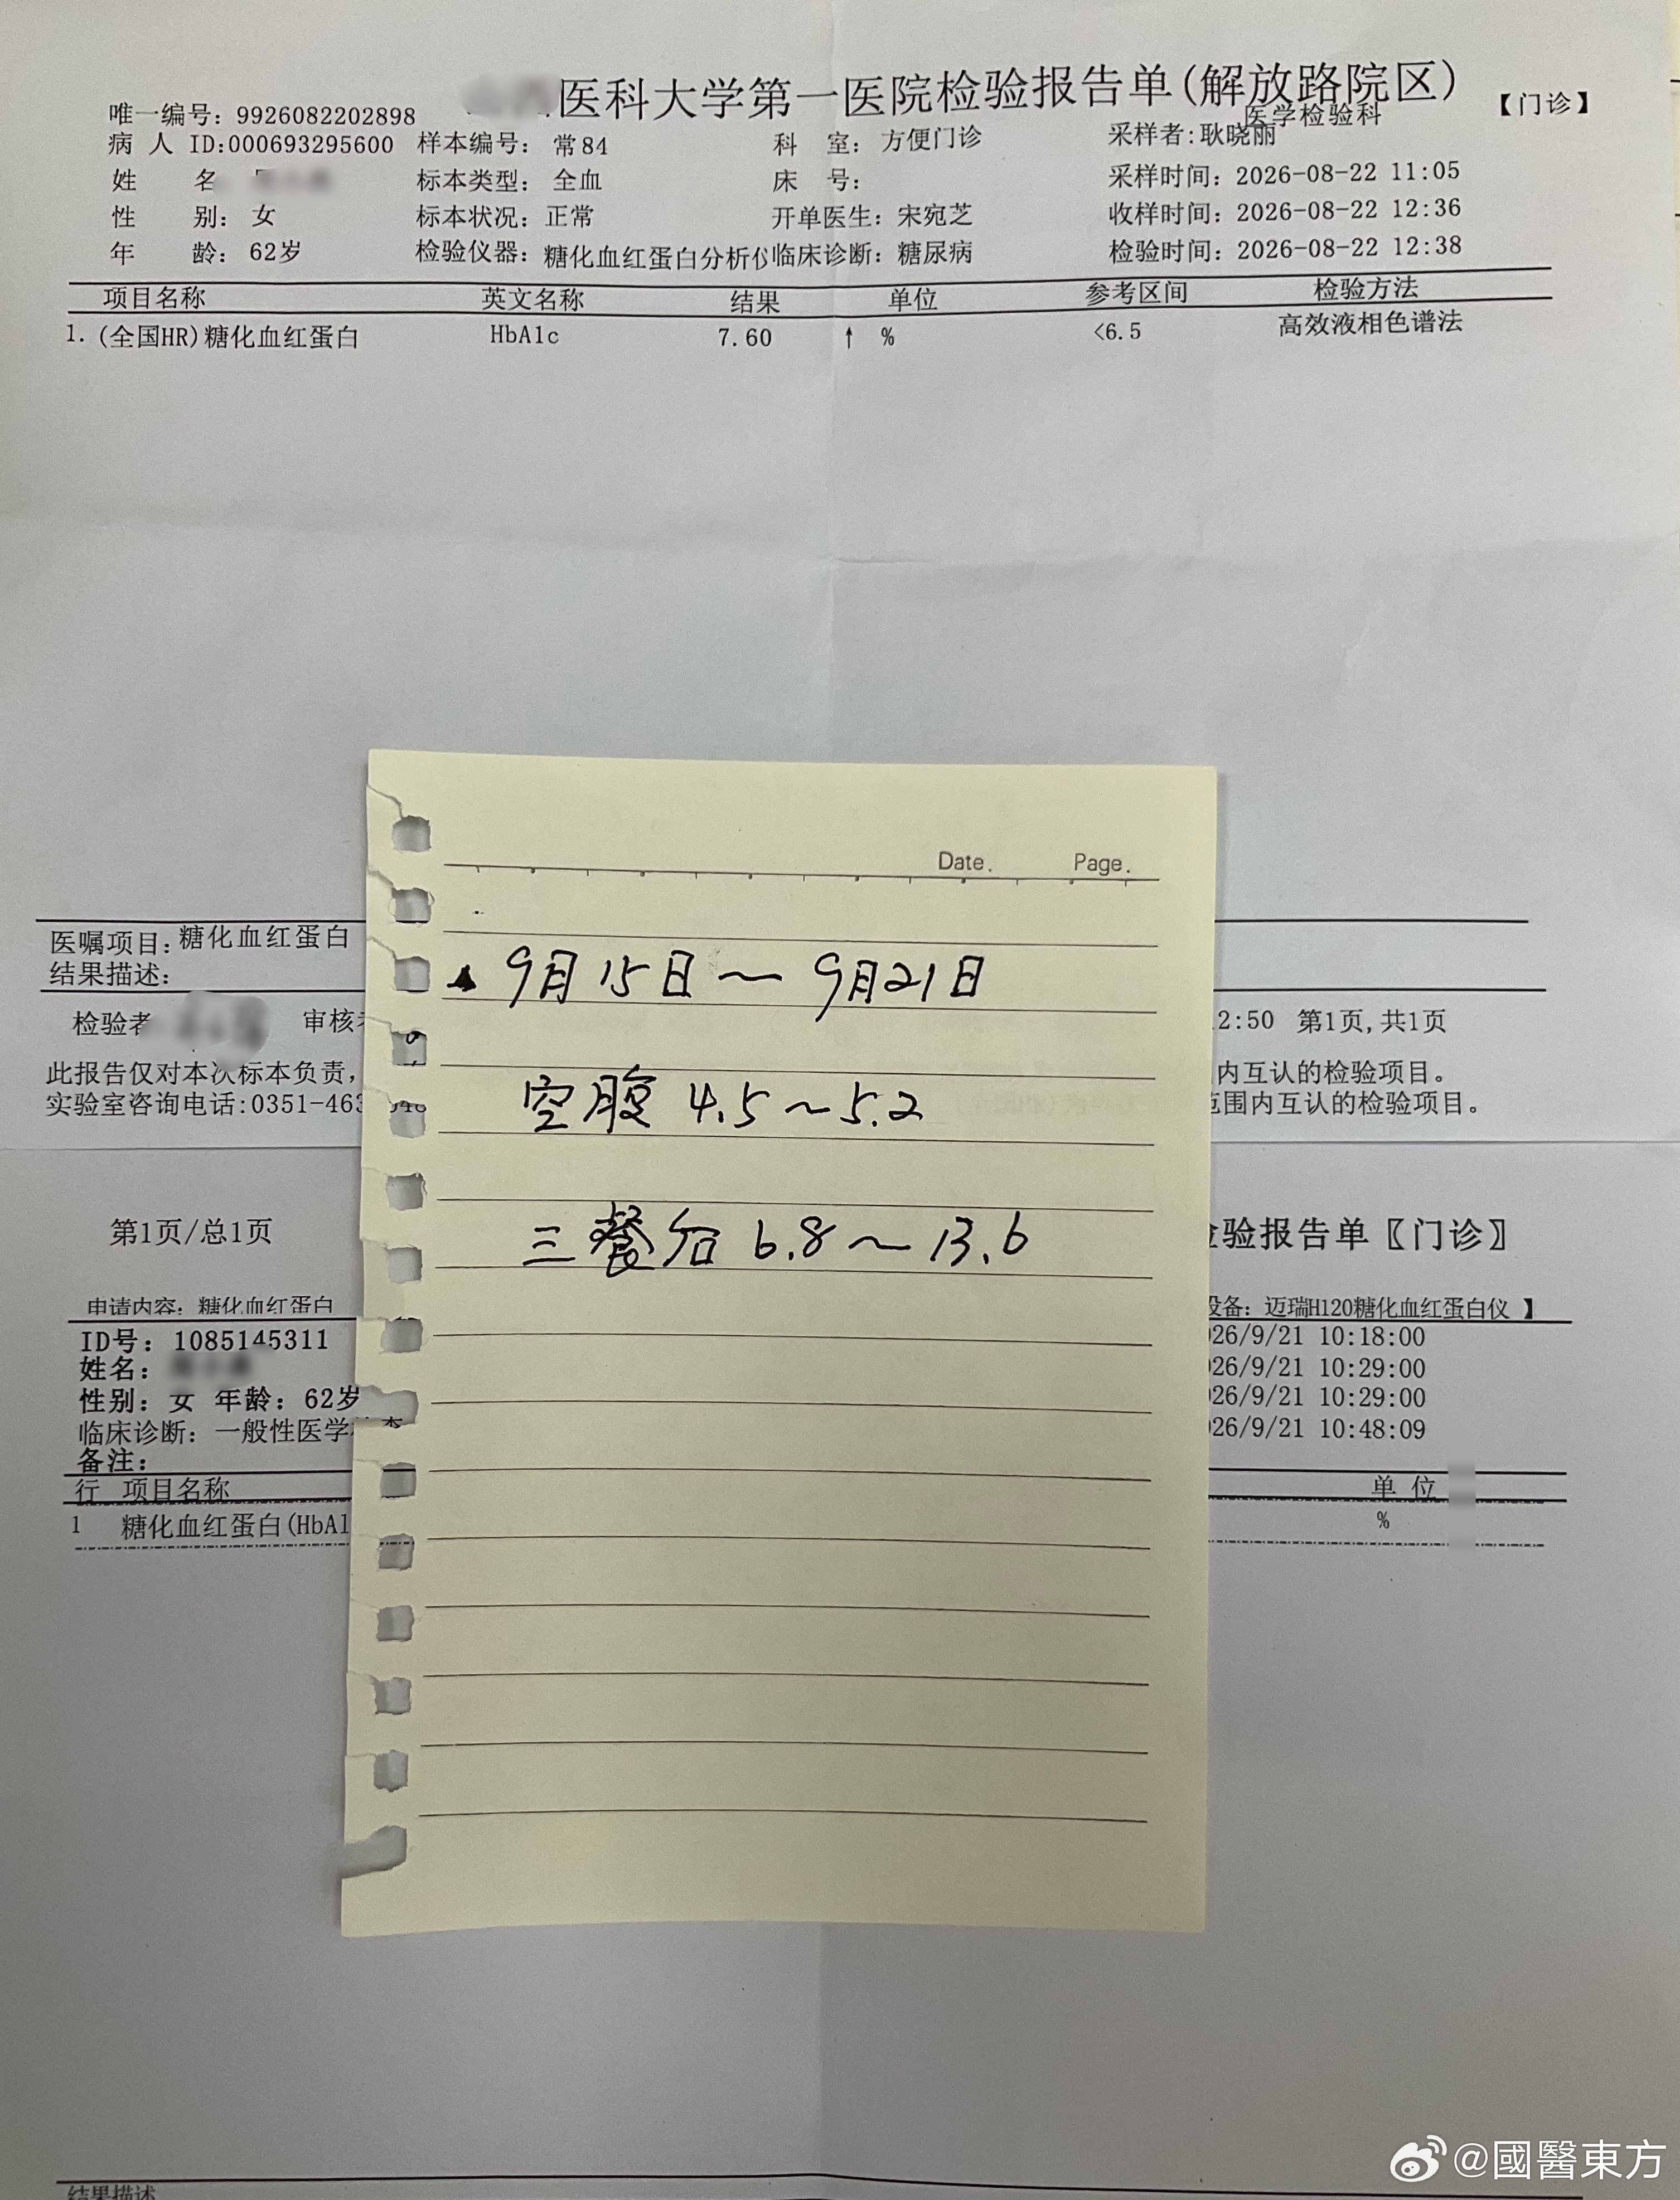 医科大学第一医院检验报告单(解放路院区) 【门诊】
医学检验科
唯一编号: 9926082202898
病 人 ID:000693295600 样本编号: 常84 科 室: 方便门诊 采样者: 耿晓丽
姓 名: 标本类型: 全血 床 号: 采样时间: 2026-08-22 11:05
性 别: 女 标本状况: 正常 开单医生: 宋宛芝 收样时间: 2026-08-22 12:36
年 龄: 62岁 检验仪器: 糖化血红蛋白分析仪 临床诊断: 糖尿病 检验时间: 2026-08-22 12:38
项目名称 英文名称 结果 单位 参考区间 检验方法
1. (全国HR)糖化血红蛋白 HbA1c 7.60 ↑ % <6.5 高效液相色谱法
Date. Page.
9月15日～9月21日
空腹 4.5～5.2
三餐后 6.8～13.6
医嘱项目: 糖化血红蛋白
结果描述:
检验者 审核 2:50 第1页,共1页
此报告仅对本次标本负责, 内互认的检验项目。
实验室咨询电话:0351-463 范围内互认的检验项目。
第1页/总1页 验报告单〖门诊〗
申请内容: 糖化血红蛋白 设备: 迈瑞H120糖化血红蛋白仪 】
ID号: 1085145311 26/9/21 10:18:00
姓名: 26/9/21 10:29:00
性别: 女 年龄: 62岁 26/9/21 10:29:00
临床诊断: 一般性医学 26/9/21 10:48:09
备注:
行 项目名称 单 位
1 糖化血红蛋白(HbA1 %
结果描述
@國醫東方